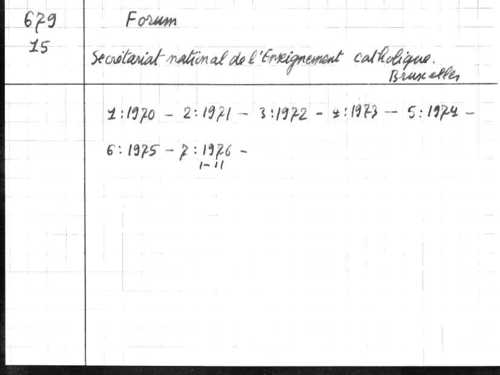 679 Forum
15
Secrétariat national de l'Enseignement catholique.
Bruxelles
1:1970 - 2:1971 - 3:1972 - 4:1973 - 5:1974 -
6:1975 - 7:1976 -
1-11